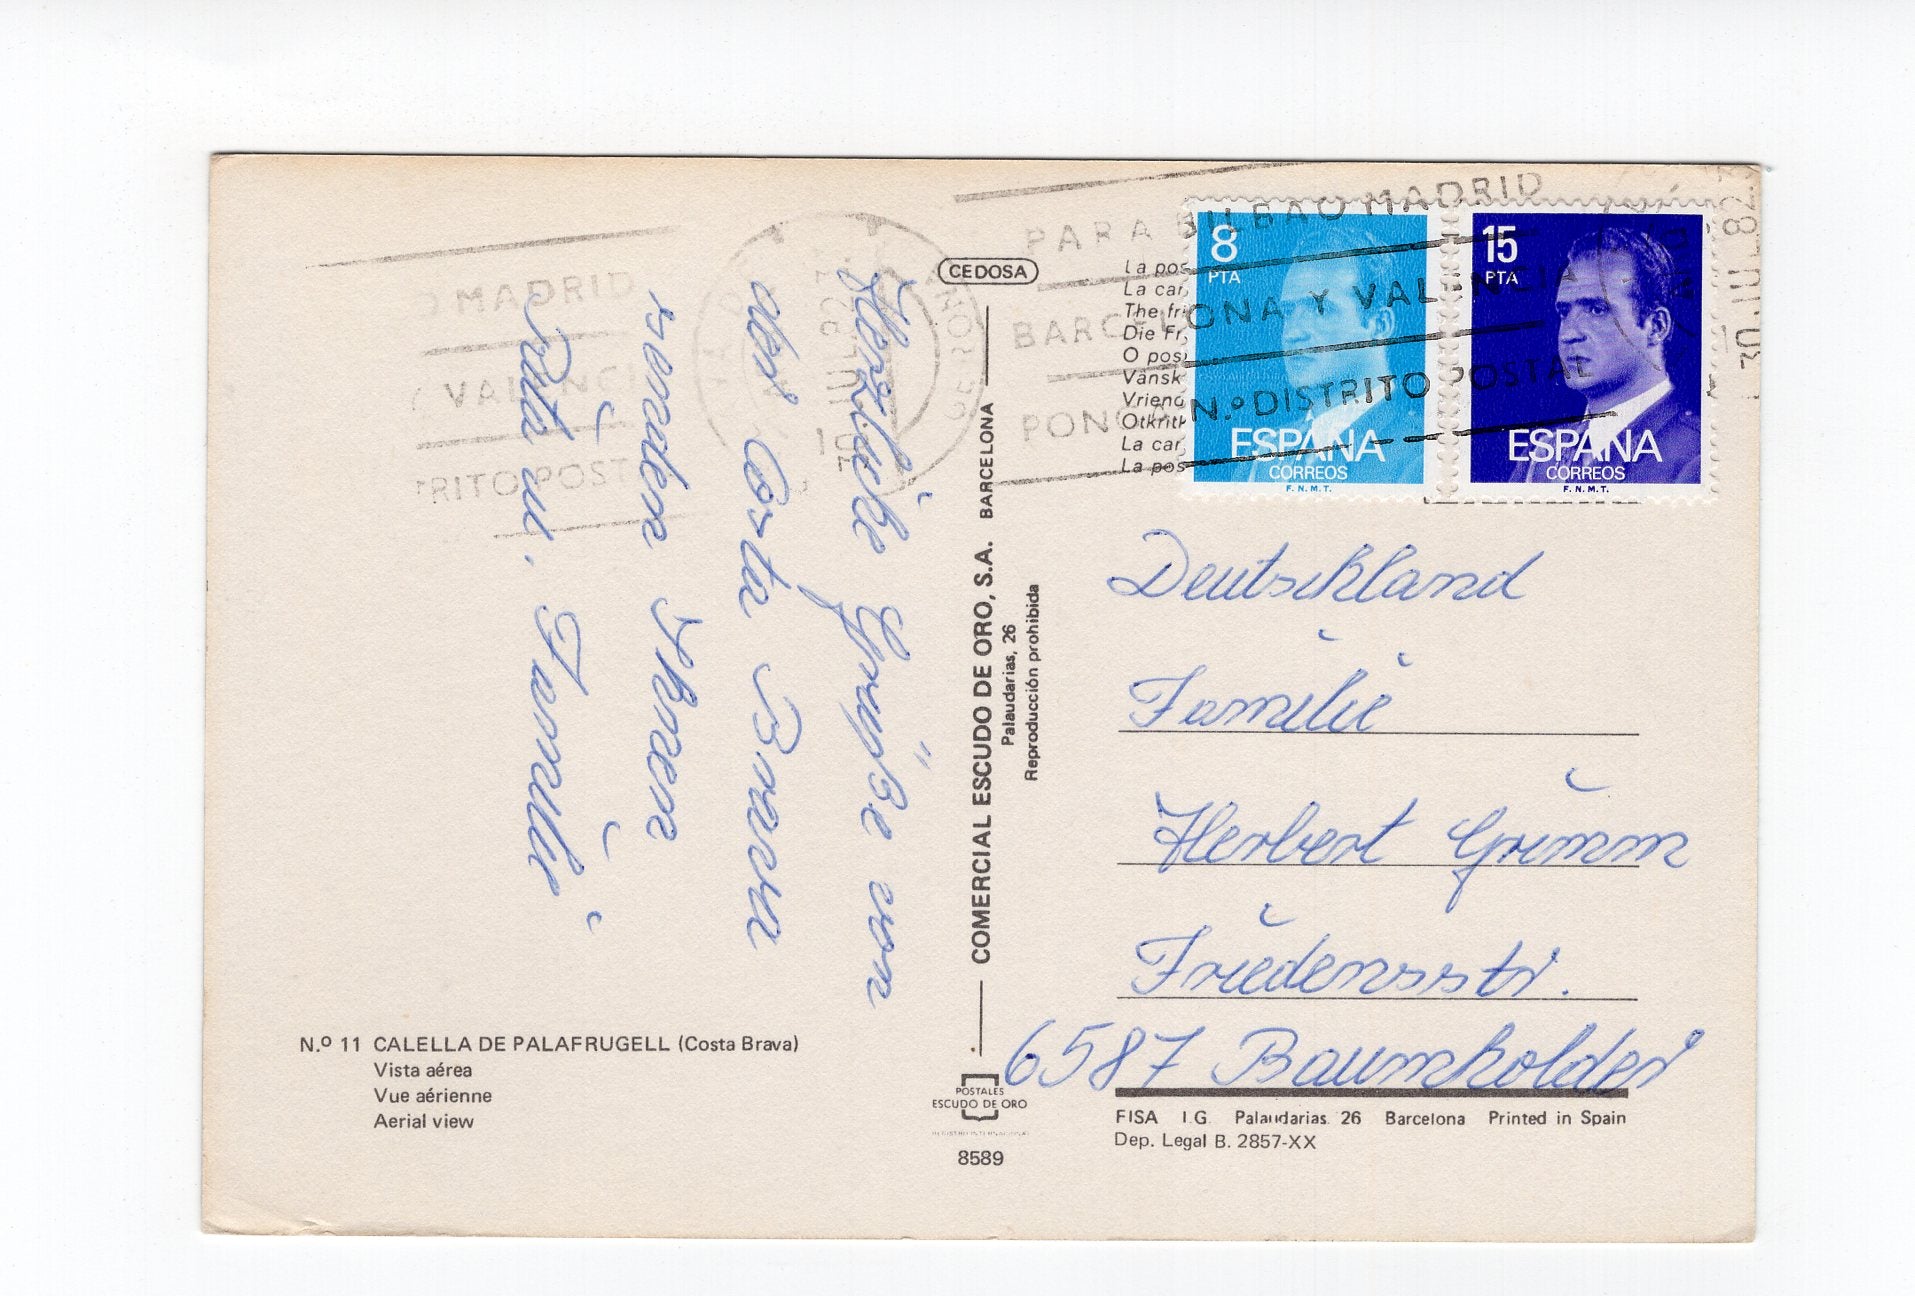 Herzliche Grüße von
der Costa Brava
senden Ihnen
Rita u. Familie
N.º 11 CALELLA DE PALAFRUGELL (Costa Brava)
Vista aérea
Vue aérienne
Aerial view
CEDOSA
COMERCIAL ESCUDO DE ORO, S.A. BARCELONA
Palaudarias, 26
Reproducción prohibida
POSTALES
ESCUDO DE ORO
8589
MADRID
VALENCI
RITO POST
GERONA
PARA BILBAO MADRID
BARCELONA Y VALENCIA
PONGA N.º DISTRITO POSTAL
La pos
La car
The fr
Die Fr
O pos
Vänsk
Vriend
Otkritk
La car
La pos
8
PTA
ESPAÑA
CORREOS
F.N.M.T.
15
PTA
ESPAÑA
CORREOS
F.N.M.T.
Deutschland
Familie
Herbert Grimm
Friedensstr.
6587 Baumholder
FISA I.G. Palaudarias, 26 Barcelona Printed in Spain
Dep. Legal B. 2857-XX